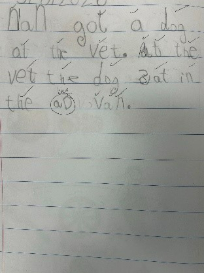 Nan got a dog
at the vet. At the
vet the dog sat in
the van.